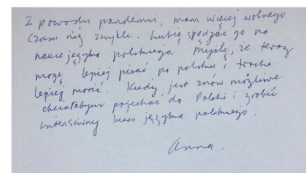 Z powodu pandemii, mam więcej wolnego
czasu niż zwykle. Lubię spędzać go na
nauce języka polskiego. Myślę, że teraz
mogę lepiej pisać po polsku i trochę
lepiej mówić. Kiedy jest znów możliwe
chciałabym pojechać do Polski i zrobić
intensywny kurs języka polskiego.
Anna.